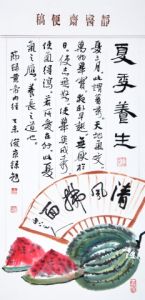 靜醫齋便稿
夏季養生
夏三月此謂蕃秀天地氣交
萬物華實夜臥早起無厭於
日使志無怒使華英成秀
使氣得泄若所愛在外此夏
氣之應養長之道也
節錄黃帝內經
清風拂面